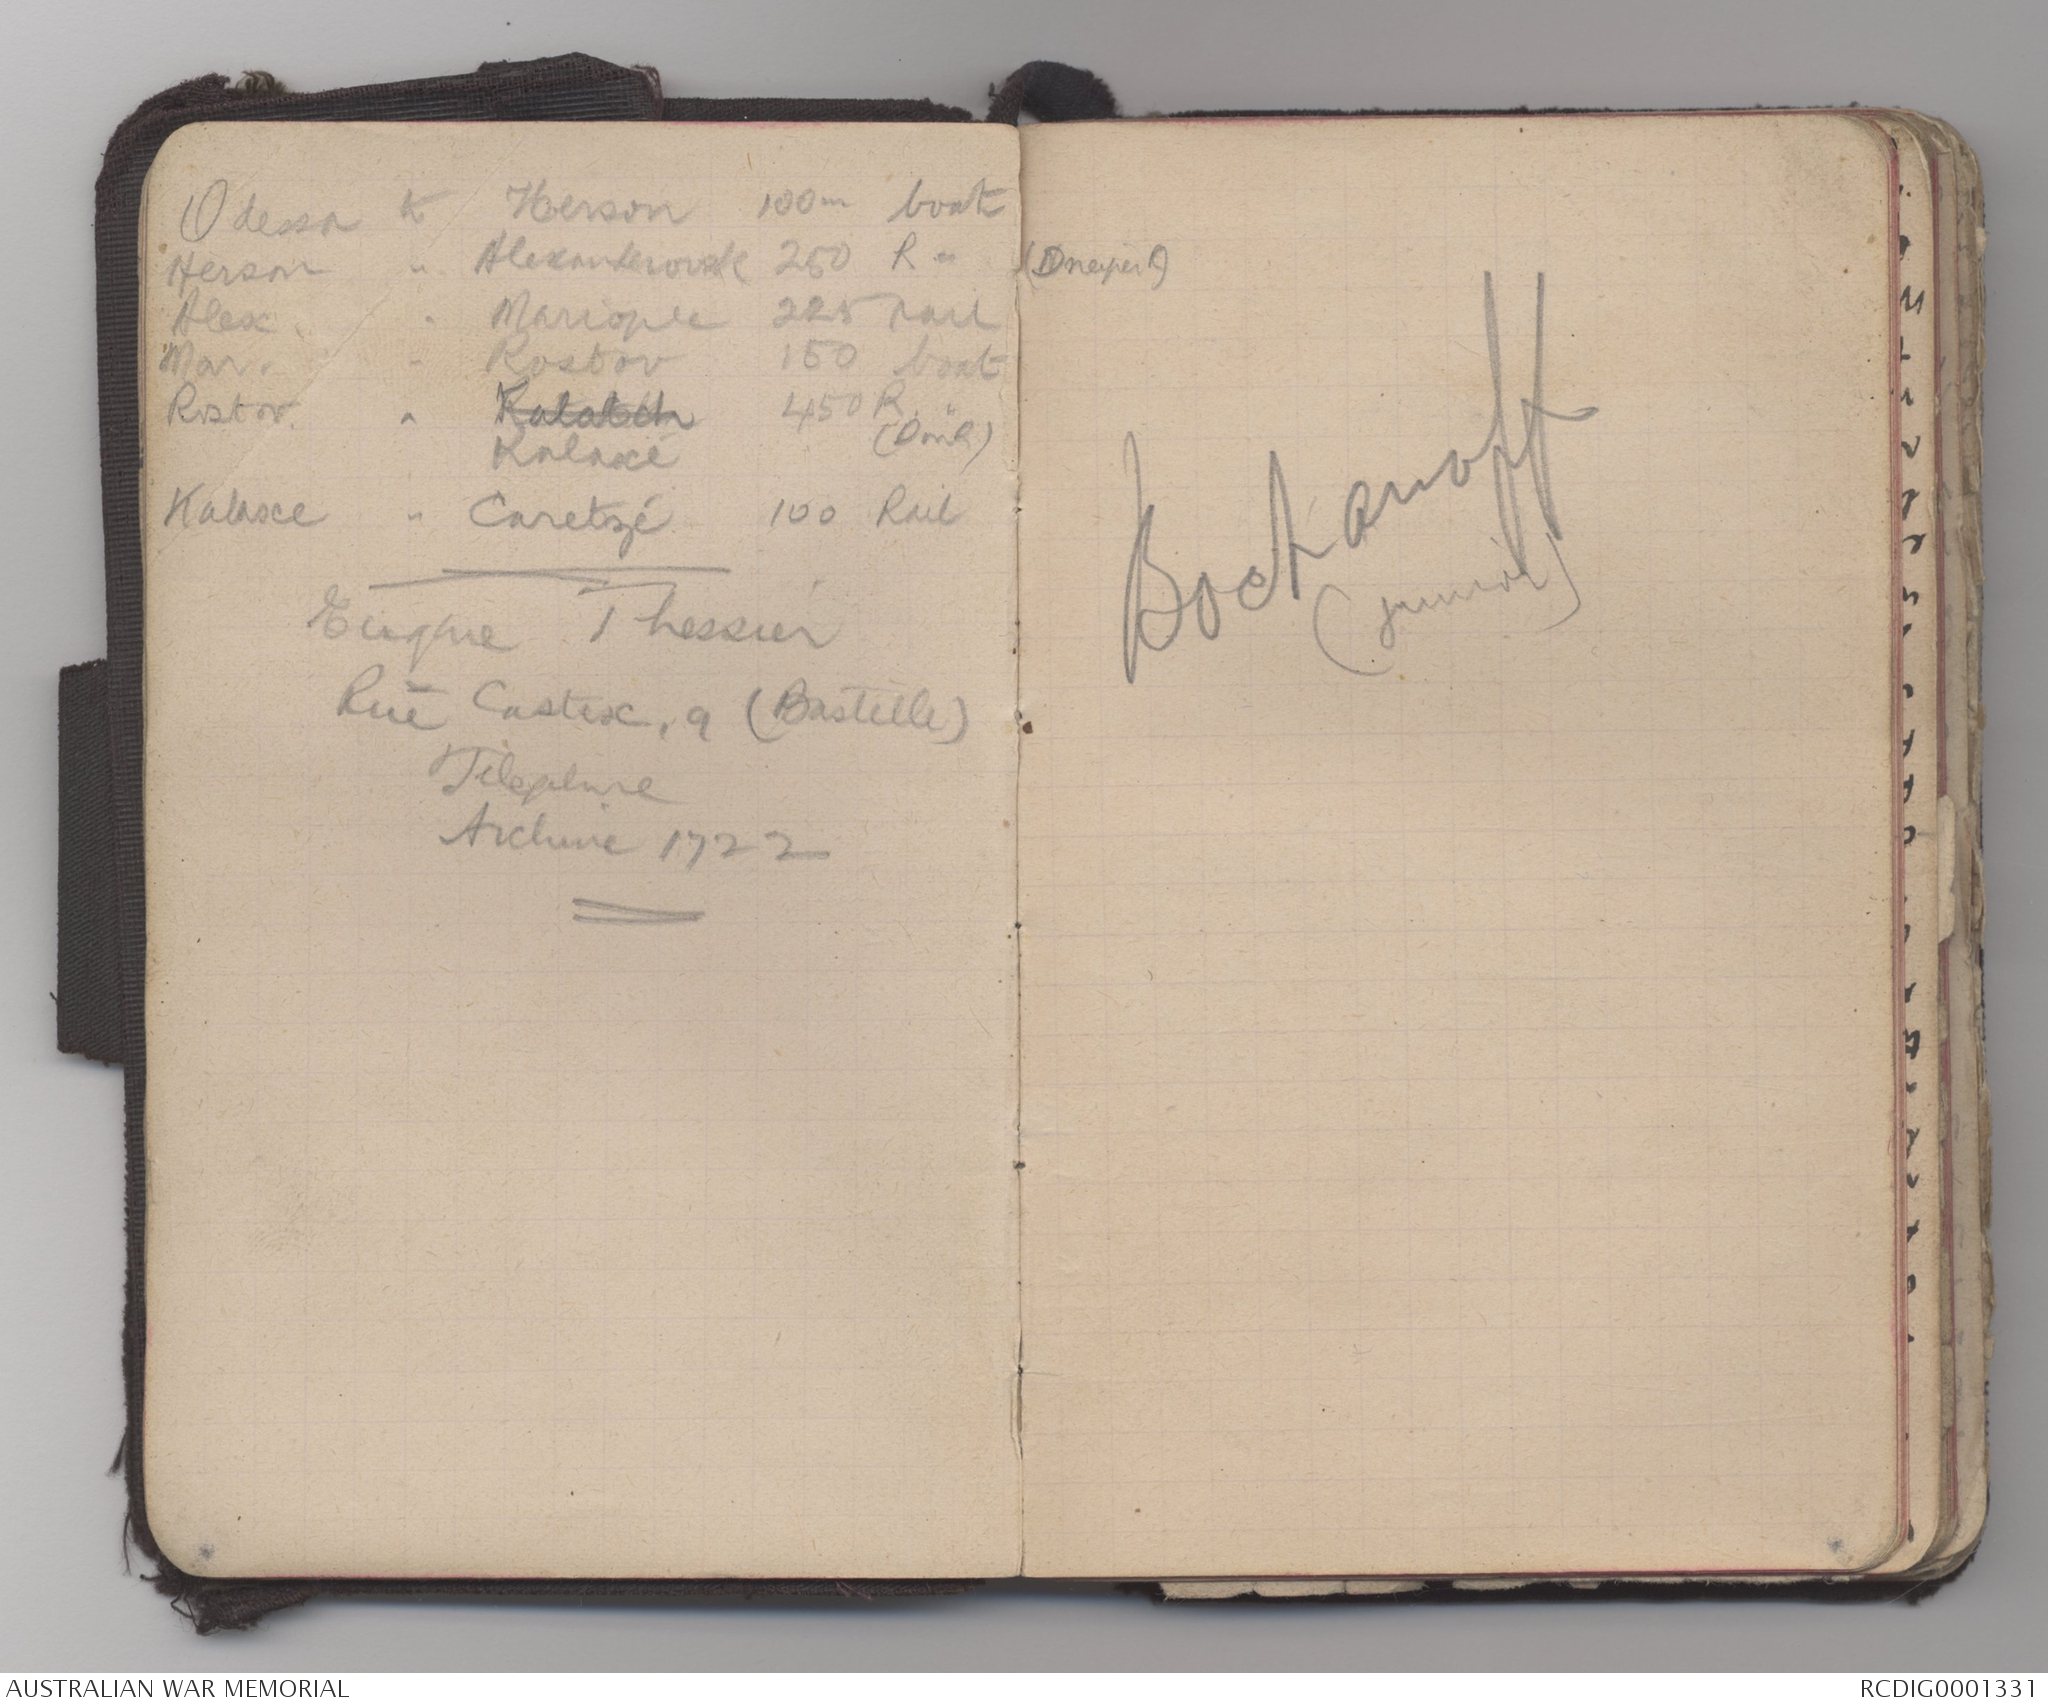 Odessa to Kerson 100m boat
Herson " Alexanderovsk 250 R " (Dneiper R)
Alex " Mariople 225 rail
Mar. " Rostov 150 boat
Rostov. " Kalatch 450 R. "
Kalacé (Don R)
Kalace " Caretzé 100 Rail
Eugne Thessier
Rue Castex, 9 (Bastille)
Telephone
Archive 1722
Bockanoff
(junior)
AUSTRALIAN WAR MEMORIAL
RCDIG0001331